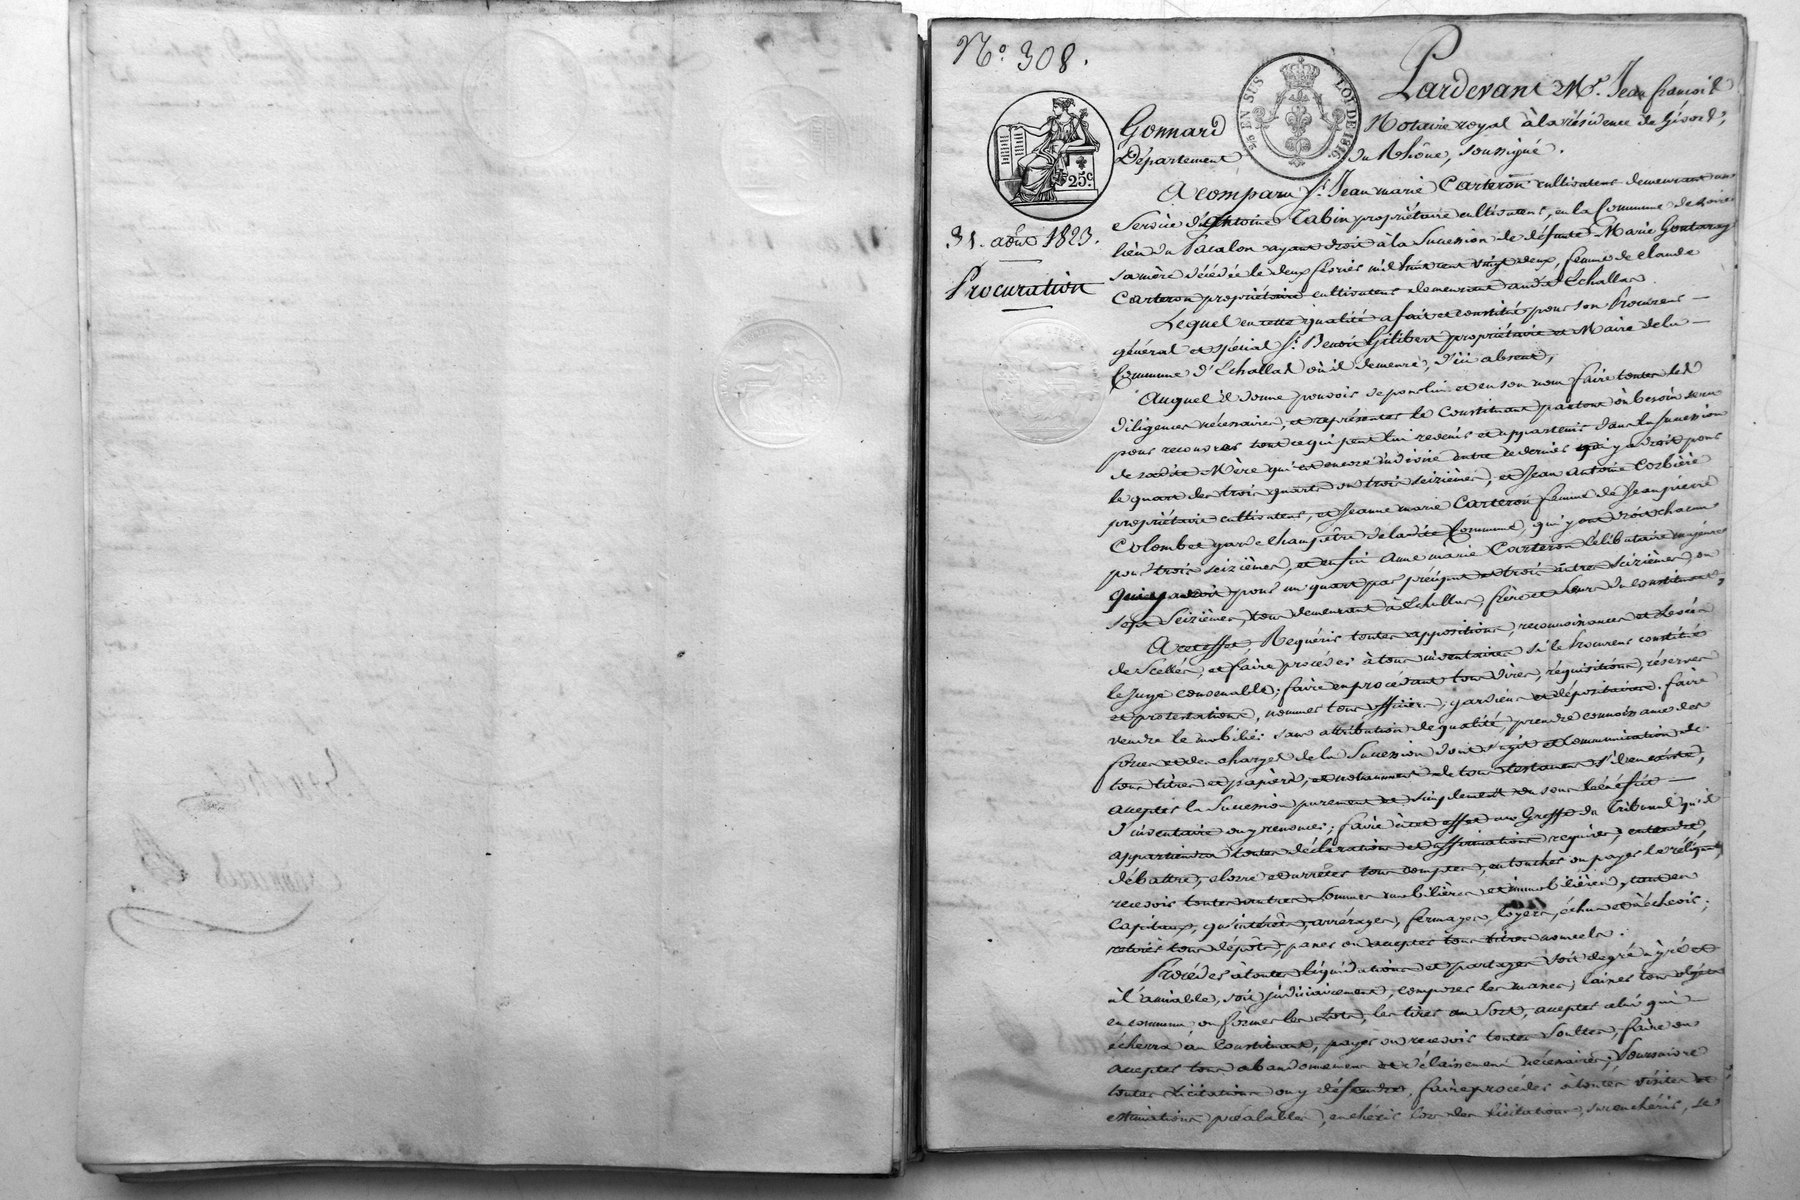 N.° 308.
Pardevant M.e Jean françois
Gonnard Notaire royal à la résidence de Givors,
Département du Rhône, soussigné.
25 EN SUS LOI DE 1816
25c
31. août 1823.
Procuration
A comparu S.r Jean marie Carteron cultivateur demeurant au
Service d'Antoine Tabin propriétaire cultivateur, en la Commune de
lieu du Pacalon ayant droit à la Succession de défunte Marie Gontaray
sa mère décédée le deux février mil huit cent vingt deux, femme de claude
Carteron propriétaire cultivateur demeurant audit Echallas.
Lequel en cette qualité a fait et constitué pour son Procureur
général et spécial S.r Benoit Gilibert propriétaire et Maire de la
Commune d'Echallas où il demeure, d'ici absent,
Auquel il donne pouvoir de pour lui et en son nom faire toutes les
diligences nécessaires, et représenter le Constituant partout où besoin sera
pour recouvrer tout ce qui peut lui revenir et appartenir dans la Succession
de sadite Mère qui est encore indivise entre ce dernier qui y a droit pour
le quart des trois quarts ou trois seizièmes, et Jean Antoine Corbière
propriétaire cultivateur, et Jeanne marie Carteron femme de Jean pierre
Colombet garde champêtre de ladite Commune, qui y ont droit chacun
pour trois seizièmes, et enfin Anne marie Carteron célibataire majeure
qui y a droit pour un quart par préciput et trois autres seizièmes, ou
sept seizièmes, tous demeurant à Echallas, frère et soeurs du constituant,
A cet effet, Requérir toutes appositions, reconnoissances et levées
de Scellés, et faire procéder à tous inventaires si le Procureur constitué
le juge convenable; faire en procédant tous dires, réquisitions, réserves
et protestations, nommer tous officiers, gardiens et dépositaires. faire
vendre le mobilier sans attribution de qualité, prendre connoissance des
forces et des charges de la Succession dont s'agit et communication de
tous titres et papiers, et notamment de tous testamens s'il en existe,
accepter la Succession purement et simplement ou sous bénéfice
d'inventaire ou y renoncer; faire à cet effet au Greffe du Tribunal qu'il
appartiendra toutes déclarations et affirmations requises, entendre,
débattre, clorre et arrêter tous comptes, en toucher ou payer le reliquat,
recevoir toutes autres sommes mobilières et immobilières, tant en
Capitaux, qu'intérêts, arrérages, fermages, loyers, échus et à échoir;
retirer tous dépôts, passer ou accepter tous titres nouvels.
Procéder à toutes liquidations et partages soit de gré à gré et
à l'amiable, soit judiciairement, composer les masses, laisser tous objets
en commun, ou former les lots, les tirer au Sort, accepter celui qui
écherra au Constituant, payer ou recevoir toutes Soultes, faire ou
accepter tous abandonnemens et délaissemens nécessaires; Poursuivre
toutes licitations ou y défendre, faire procéder à toutes visites et
estimations préalables, enchérir lors des licitations, surenchérir, se